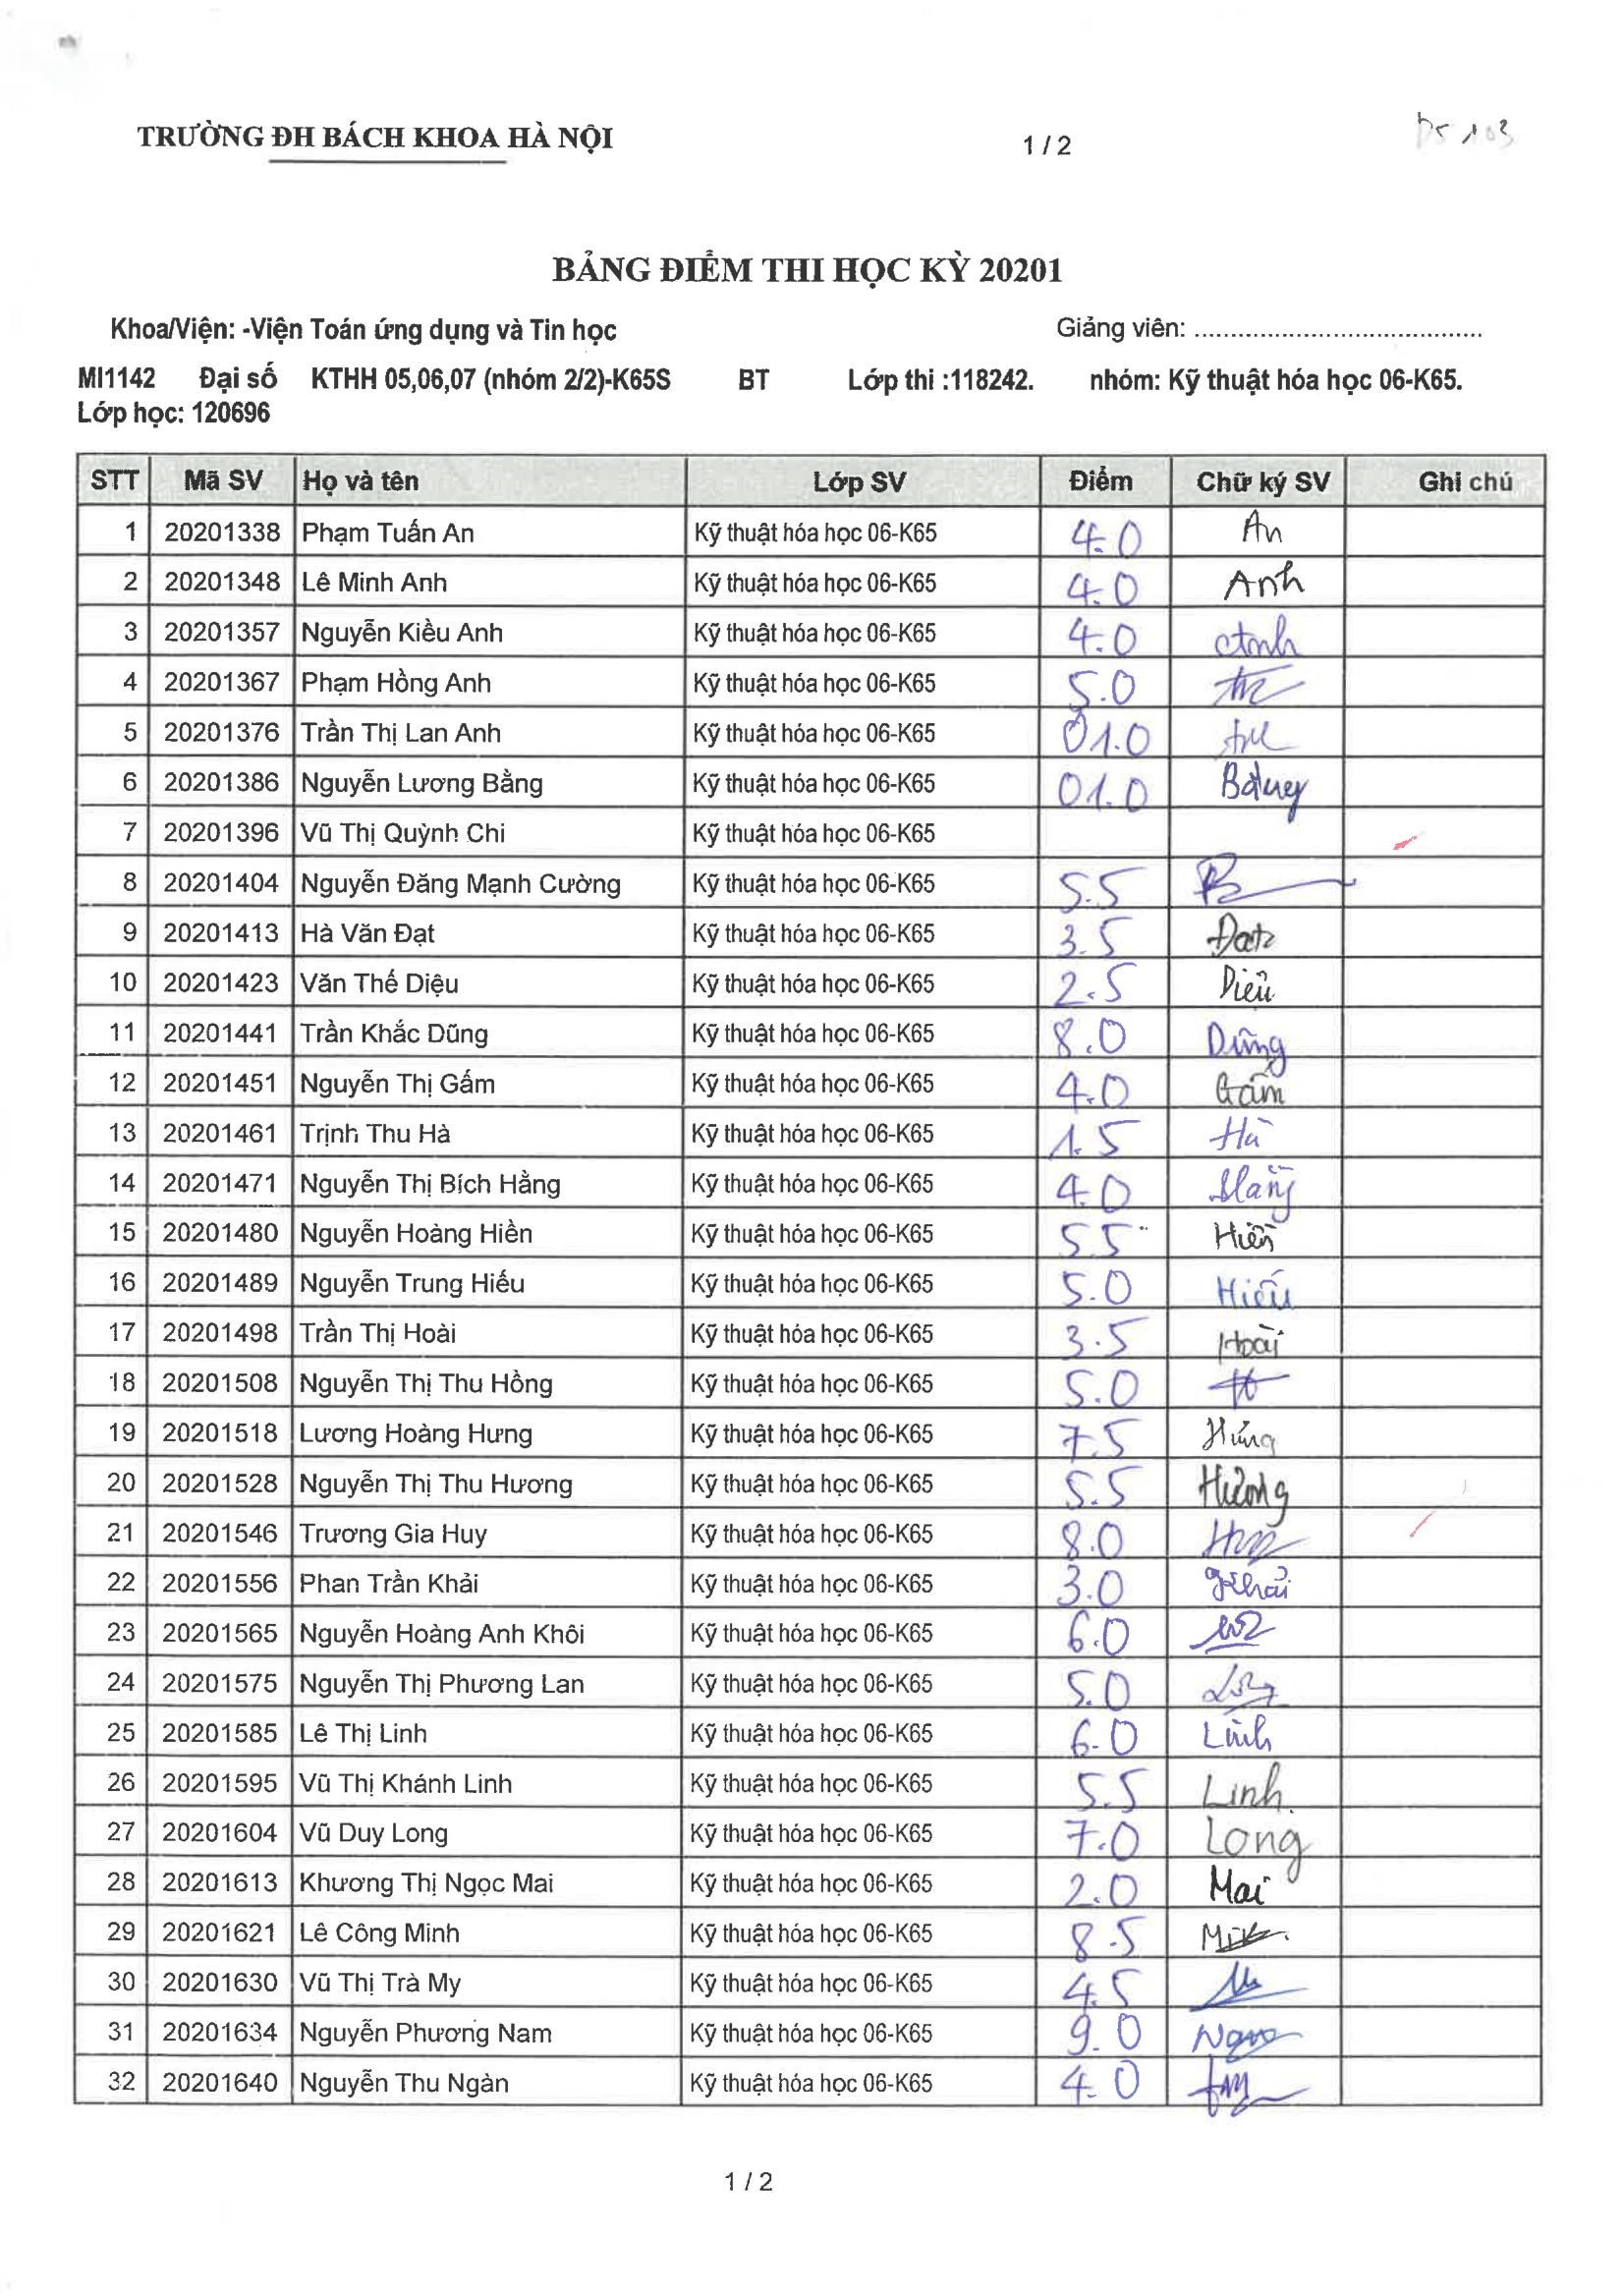 TRƯỜNG ĐH BÁCH KHOA HÀ NỘI 1 / 2
BẢNG ĐIỂM THI HỌC KỲ 20201
Khoa/Viện: -Viện Toán ứng dụng và Tin học Giảng viên: .....................................
MI1142 Đại số KTHH 05,06,07 (nhóm 2/2)-K65S BT Lớp thi :118242. nhóm: Kỹ thuật hóa học 06-K65.
Lớp học: 120696
STT Mã SV Họ và tên Lớp SV Điểm Chữ ký SV Ghi chú
1 20201338 Phạm Tuấn An Kỹ thuật hóa học 06-K65 4.0 An
2 20201348 Lê Minh Anh Kỹ thuật hóa học 06-K65 4.0 Anh
3 20201357 Nguyễn Kiều Anh Kỹ thuật hóa học 06-K65 4.0 Anh
4 20201367 Phạm Hồng Anh Kỹ thuật hóa học 06-K65 5.0
5 20201376 Trần Thị Lan Anh Kỹ thuật hóa học 06-K65 01.0
6 20201386 Nguyễn Lương Bằng Kỹ thuật hóa học 06-K65 01.0 Bằng
7 20201396 Vũ Thị Quỳnh Chi Kỹ thuật hóa học 06-K65
8 20201404 Nguyễn Đăng Mạnh Cường Kỹ thuật hóa học 06-K65 5.5
9 20201413 Hà Văn Đạt Kỹ thuật hóa học 06-K65 3.5 Đạt
10 20201423 Văn Thế Diệu Kỹ thuật hóa học 06-K65 2.5 Diệu
11 20201441 Trần Khắc Dũng Kỹ thuật hóa học 06-K65 8.0 Dũng
12 20201451 Nguyễn Thị Gấm Kỹ thuật hóa học 06-K65 4.0 Gấm
13 20201461 Trịnh Thu Hà Kỹ thuật hóa học 06-K65 1.5 Hà
14 20201471 Nguyễn Thị Bích Hằng Kỹ thuật hóa học 06-K65 4.0 Hằng
15 20201480 Nguyễn Hoàng Hiền Kỹ thuật hóa học 06-K65 5.5 Hiền
16 20201489 Nguyễn Trung Hiếu Kỹ thuật hóa học 06-K65 5.0 Hiếu
17 20201498 Trần Thị Hoài Kỹ thuật hóa học 06-K65 3.5 Hoài
18 20201508 Nguyễn Thị Thu Hồng Kỹ thuật hóa học 06-K65 5.0
19 20201518 Lương Hoàng Hưng Kỹ thuật hóa học 06-K65 7.5 Hưng
20 20201528 Nguyễn Thị Thu Hương Kỹ thuật hóa học 06-K65 5.5 Hương
21 20201546 Trương Gia Huy Kỹ thuật hóa học 06-K65 8.0 Huy
22 20201556 Phan Trần Khải Kỹ thuật hóa học 06-K65 3.0 Khải
23 20201565 Nguyễn Hoàng Anh Khôi Kỹ thuật hóa học 06-K65 6.0
24 20201575 Nguyễn Thị Phương Lan Kỹ thuật hóa học 06-K65 5.0
25 20201585 Lê Thị Linh Kỹ thuật hóa học 06-K65 6.0 Linh
26 20201595 Vũ Thị Khánh Linh Kỹ thuật hóa học 06-K65 5.5 Linh
27 20201604 Vũ Duy Long Kỹ thuật hóa học 06-K65 7.0 Long
28 20201613 Khương Thị Ngọc Mai Kỹ thuật hóa học 06-K65 2.0 Mai
29 20201621 Lê Công Minh Kỹ thuật hóa học 06-K65 8.5
30 20201630 Vũ Thị Trà My Kỹ thuật hóa học 06-K65 4.5
31 20201634 Nguyễn Phương Nam Kỹ thuật hóa học 06-K65 9.0 Nam
32 20201640 Nguyễn Thu Ngàn Kỹ thuật hóa học 06-K65 4.0
1 / 2